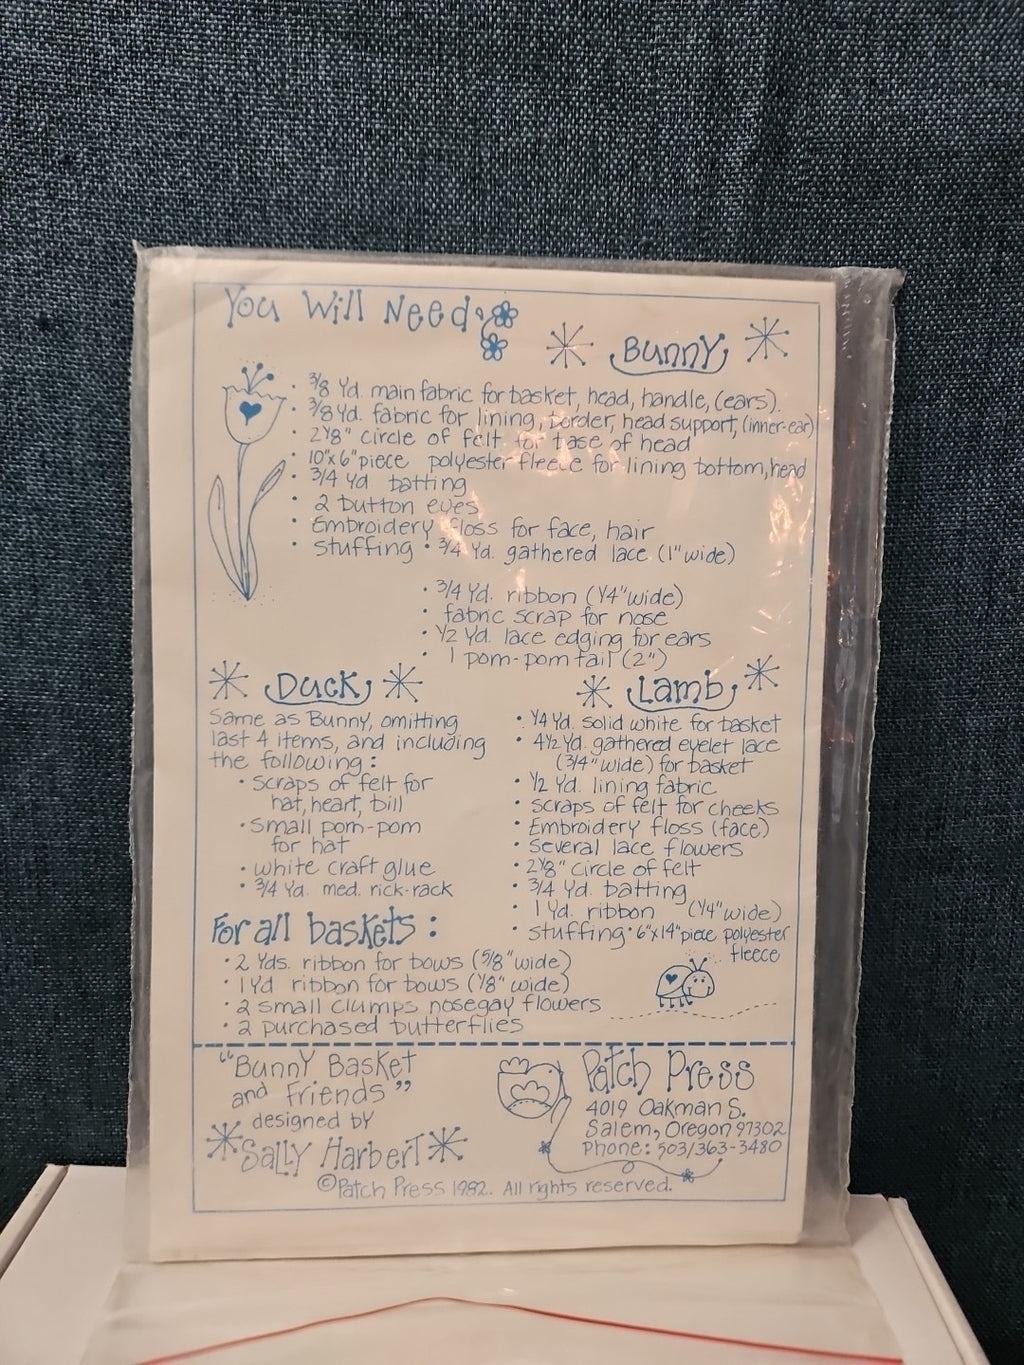 You Will Need:
Bunny
• 3/8 Yd. main fabric for basket, head, handle, (ears).
• 3/8 Yd. fabric for lining, border, head support, (inner-ear)
• 2 1/8" circle of felt for base of head
• 10"x6" piece polyester fleece for lining bottom, head
• 3/4 Yd batting
• 2 button eyes
• Embroidery floss for face, hair
• stuffing • 3/4 Yd. gathered lace (1" wide)
• 3/4 Yd. ribbon (1/4" wide)
• fabric scrap for nose
• 1/2 Yd. lace edging for ears
• 1 pom-pom tail (2")
Duck
Same as Bunny, omitting
last 4 items, and including
the following:
• scraps of felt for
hat, heart, bill
• small pom-pom
for hat
• white craft glue
• 3/4 Yd. med. rick-rack
Lamb
• 1/4 Yd. solid white for basket
• 4 1/2 Yd. gathered eyelet lace
(3/4" wide) for basket
• 1/2 Yd. lining fabric
• scraps of felt for cheeks
• Embroidery floss (face)
• several lace flowers
• 2 1/8" circle of felt
• 3/4 Yd. batting
• 1 Yd. ribbon (1/4" wide)
• stuffing • 6"x14" piece polyester
fleece
For all baskets:
• 2 Yds. ribbon for bows (5/8" wide)
• 1 Yd ribbon for bows (1/8" wide)
• 2 small clumps nosegay flowers
• 2 purchased butterflies
"Bunny Basket
and Friends"
designed by
Sally Harbert
Patch Press
4019 Oakman S.
Salem, Oregon 97302
Phone: 503/363-3480
©Patch Press 1982. All rights reserved.